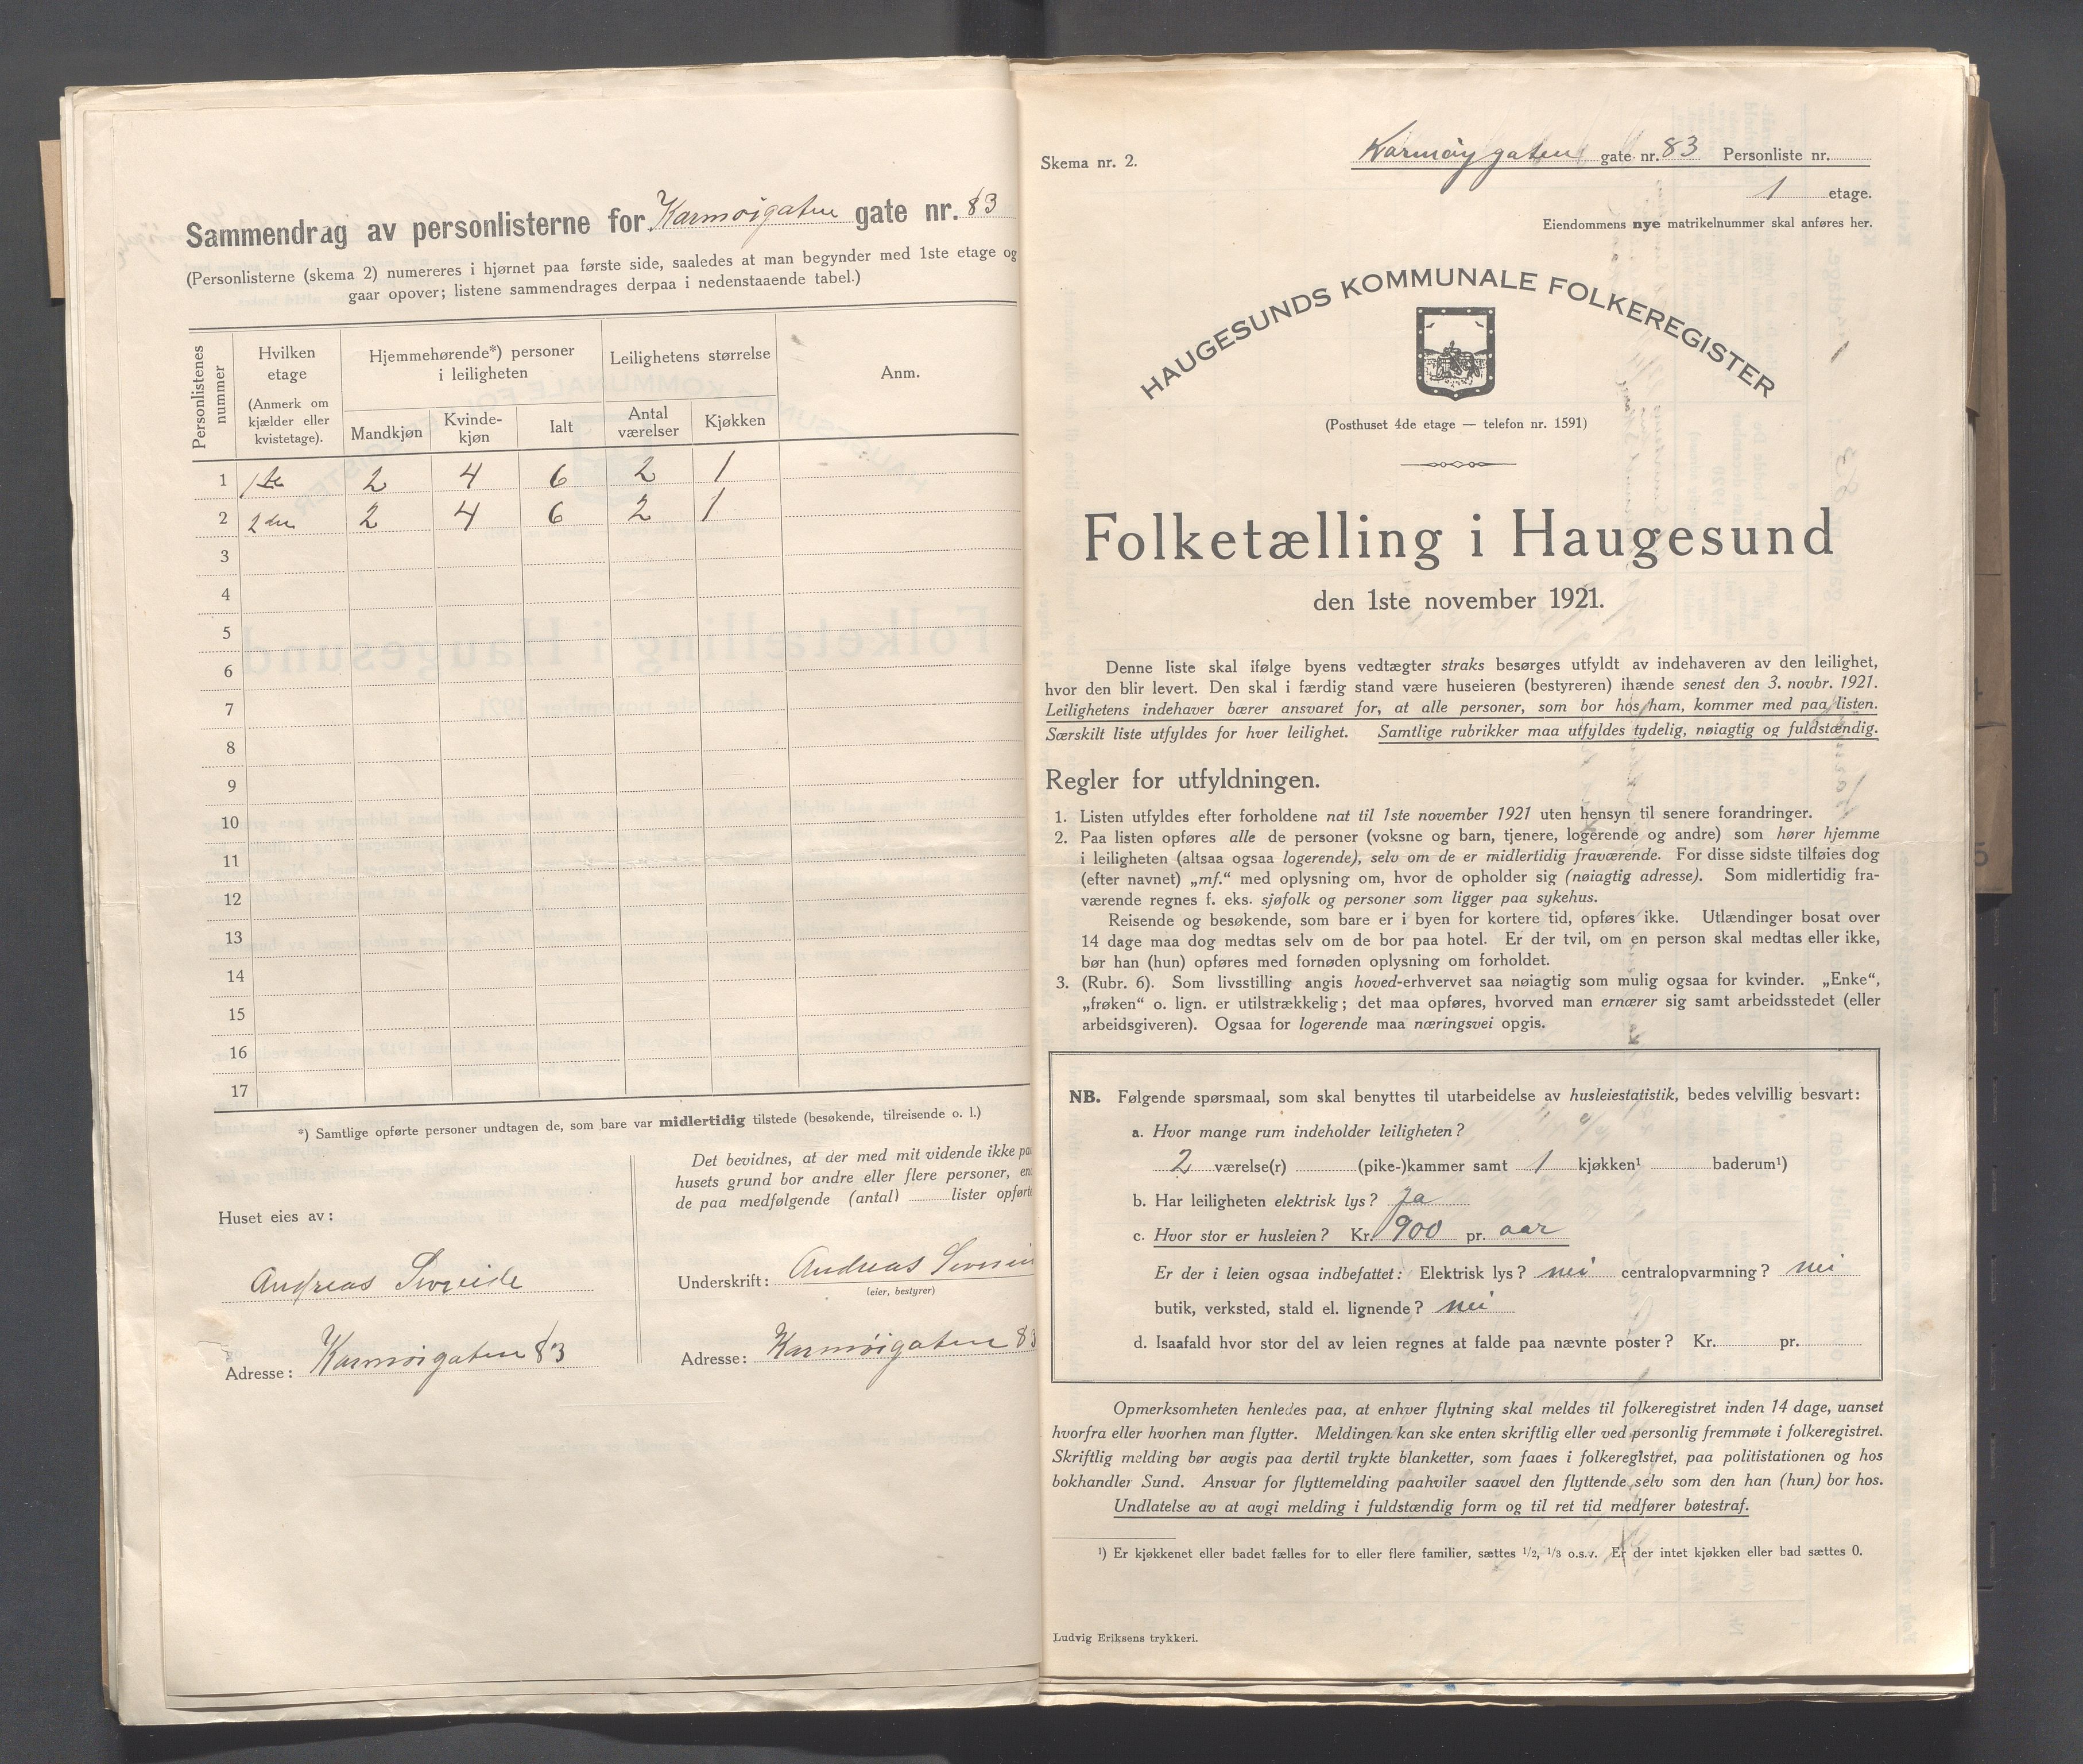 Sammendrag av personlisterne for Karmøigaten gate nr. 83
(Personlisterne (skema 2) numereres i hjørnet paa første side, saaledes at man begynder med 1ste etage og
gaar opover; listene sammendrages derpaa i nedenstaaende tabel.)
Personlistenes nummer
Hvilken etage (Anmerk om kjælder eller kvistetage).
Hjemmehørende*) personer i leiligheten
Leilighetens størrelse
Anm.
Mandkjøn Kvindekjøn Ialt Antal værelser Kjøkken
1 1ste 2 4 6 2 1
2 2den 2 4 6 2 1
3
4
5
6
7
8
9
10
11
12
13
14
15
16
17
*) Samtlige opførte personer undtagen de, som bare var midlertidig tilstede (besøkende, tilreisende o. l.)
Huset eies av:
Andreas
Adresse: Karmøigaten 83
Det bevidnes, at der med mit vidende ikke paa
husets grund bor andre eller flere personer, en
de paa medfølgende (antal) lister opført
Underskrift: Andreas
(eier, bestyrer)
Adresse: Karmøigaten 83
Skema nr. 2.
Karmøygaten gate nr. 83 Personliste nr.
1 etage.
Eiendommens nye matrikelnummer skal anføres her.
HAUGESUNDS KOMMUNALE FOLKEREGISTER
(Posthuset 4de etage — telefon nr. 1591)
Folketælling i Haugesund
den 1ste november 1921.
Denne liste skal ifølge byens vedtægter straks besørges utfyldt av indehaveren av den leilighet,
hvor den blir levert. Den skal i færdig stand være huseieren (bestyreren) ihænde senest den 3. novbr. 1921.
Leilighetens indehaver bærer ansvaret for, at alle personer, som bor hos ham, kommer med paa listen.
Særskilt liste utfyldes for hver leilighet. Samtlige rubrikker maa utfyldes tydelig, nøiagtig og fuldstændig.
Regler for utfyldningen.
1. Listen utfyldes efter forholdene nat til 1ste november 1921 uten hensyn til senere forandringer.
2. Paa listen opføres alle de personer (voksne og barn, tjenere, logerende og andre) som hører hjemme
i leiligheten (altsaa ogsaa logerende), selv om de er midlertidig fraværende. For disse sidste tilføies dog
(efter navnet) „mf.“ med oplysning om, hvor de opholder sig (nøiagtig adresse). Som midlertidig fra-
værende regnes f. eks. sjøfolk og personer som ligger paa sykehus.
Reisende og besøkende, som bare er i byen for kortere tid, opføres ikke. Utlændinger bosat over
14 dage maa dog medtas selv om de bor paa hotel. Er der tvil, om en person skal medtas eller ikke,
bør han (hun) opføres med fornøden oplysning om forholdet.
3. (Rubr. 6). Som livsstilling angis hoved-erhvervet saa nøiagtig som mulig ogsaa for kvinder. „Enke“,
„frøken“ o. lign. er utilstrækkelig; det maa opføres, hvorved man ernærer sig samt arbeidsstedet (eller
arbeidsgiveren). Ogsaa for logerende maa næringsvei opgis.
NB. Følgende spørsmaal, som skal benyttes til utarbeidelse av husleiestatistik, bedes velvillig besvart:
a. Hvor mange rum indeholder leiligheten?
2 værelse(r) (pike-)kammer samt 1 kjøkken¹ baderum¹)
b. Har leiligheten elektrisk lys? ja
c. Hvor stor er husleien? Kr. 900 pr. aar
Er der i leien ogsaa indbefattet: Elektrisk lys? nei centralopvarmning? nei
butik, verksted, stald el. lignende? nei
d. Isaafald hvor stor del av leien regnes at falde paa nævnte poster? Kr. pr.
Opmerksomheten henledes paa, at enhver flytning skal meldes til folkeregistret inden 14 dage, uanset
hvorfra eller hvorhen man flytter. Meldingen kan ske enten skriftlig eller ved personlig fremmøte i folkeregistret.
Skriftlig melding bør avgis paa dertil trykte blanketter, som faaes i folkeregistret, paa politistationen og hos
bokhandler Sund. Ansvar for flyttemelding paahviler saavel den flyttende selv som den han (hun) bor hos.
Undlatelse av at avgi melding i fuldstændig form og til ret tid medfører bøtestraf.
¹) Er kjøkkenet eller badet fælles for to eller flere familier, sættes 1/2, 1/3 o.s.v. Er der intet kjøkken eller bad sættes 0.
Ludvig Eriksens trykkeri.